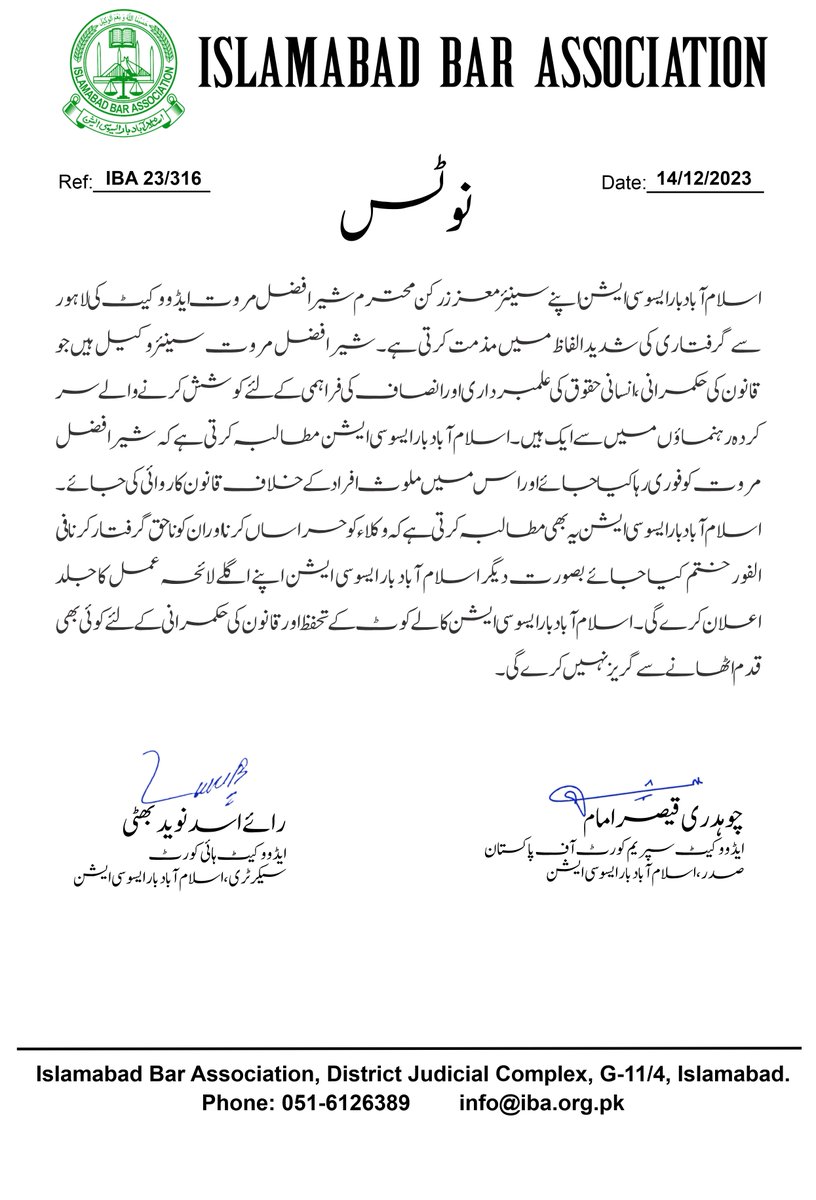 ISLAMABAD BAR ASSOCIATION
ISLAMABAD BAR ASSOCIATION
اسلام آباد بار ایسوسی ایشن
Ref: IBA 23/316
Date: 14/12/2023
نوٹس
اسلام آباد بار ایسوسی ایشن اپنے سینئر معزز رکن محترم شیر افضل مروت ایڈووکیٹ کی لاہور
سے گرفتاری کی شدید الفاظ میں مذمت کرتی ہے۔ شیر افضل مروت سینئر وکیل ہیں جو
قانون کی حکمرانی، انسانی حقوق کی علمبرداری اور انصاف کی فراہمی کے لئے کوشش کرنے والے سر
کردہ رہنماؤں میں سے ایک ہیں۔ اسلام آباد بار ایسوسی ایشن مطالبہ کرتی ہے کہ شیر افضل
مروت کو فوری رہا کیا جائے اور اس میں ملوث افراد کے خلاف قانون کاروائی کی جائے۔
اسلام آباد بار ایسوسی ایشن یہ بھی مطالبہ کرتی ہے کہ وکلاء کو حراساں کرنا وران کو ناحق گرفتار کرنا فی
الفور ختم کیا جائے بصورت دیگر اسلام آباد بار ایسوسی ایشن اپنے اگلے لائحہ عمل کا جلد
اعلان کرے گی۔ اسلام آباد بار ایسوسی ایشن کالے کوٹ کے تحفظ اور قانون کی حکمرانی کے لئے کوئی بھی
قدم اٹھانے سے گریز نہیں کرے گی۔
چوہدری قیصر امام
ایڈووکیٹ سپریم کورٹ آف پاکستان
صدر، اسلام آباد بار ایسوسی ایشن
رائے اسد نوید بھٹی
ایڈووکیٹ ہائی کورٹ
سیکرٹری، اسلام آباد بار ایسوسی ایشن
Islamabad Bar Association, District Judicial Complex, G-11/4, Islamabad.
Phone: 051-6126389 info@iba.org.pk